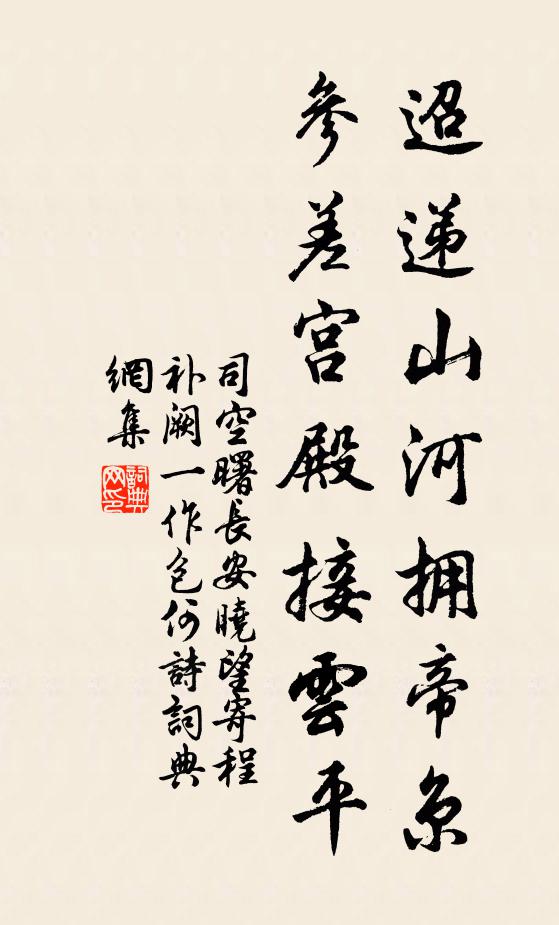 迢递山河拥帝京
參差宮殿接雲平
司空曙長安曉望寄程
补阙一作包何詩詞典
網集
詞典网印